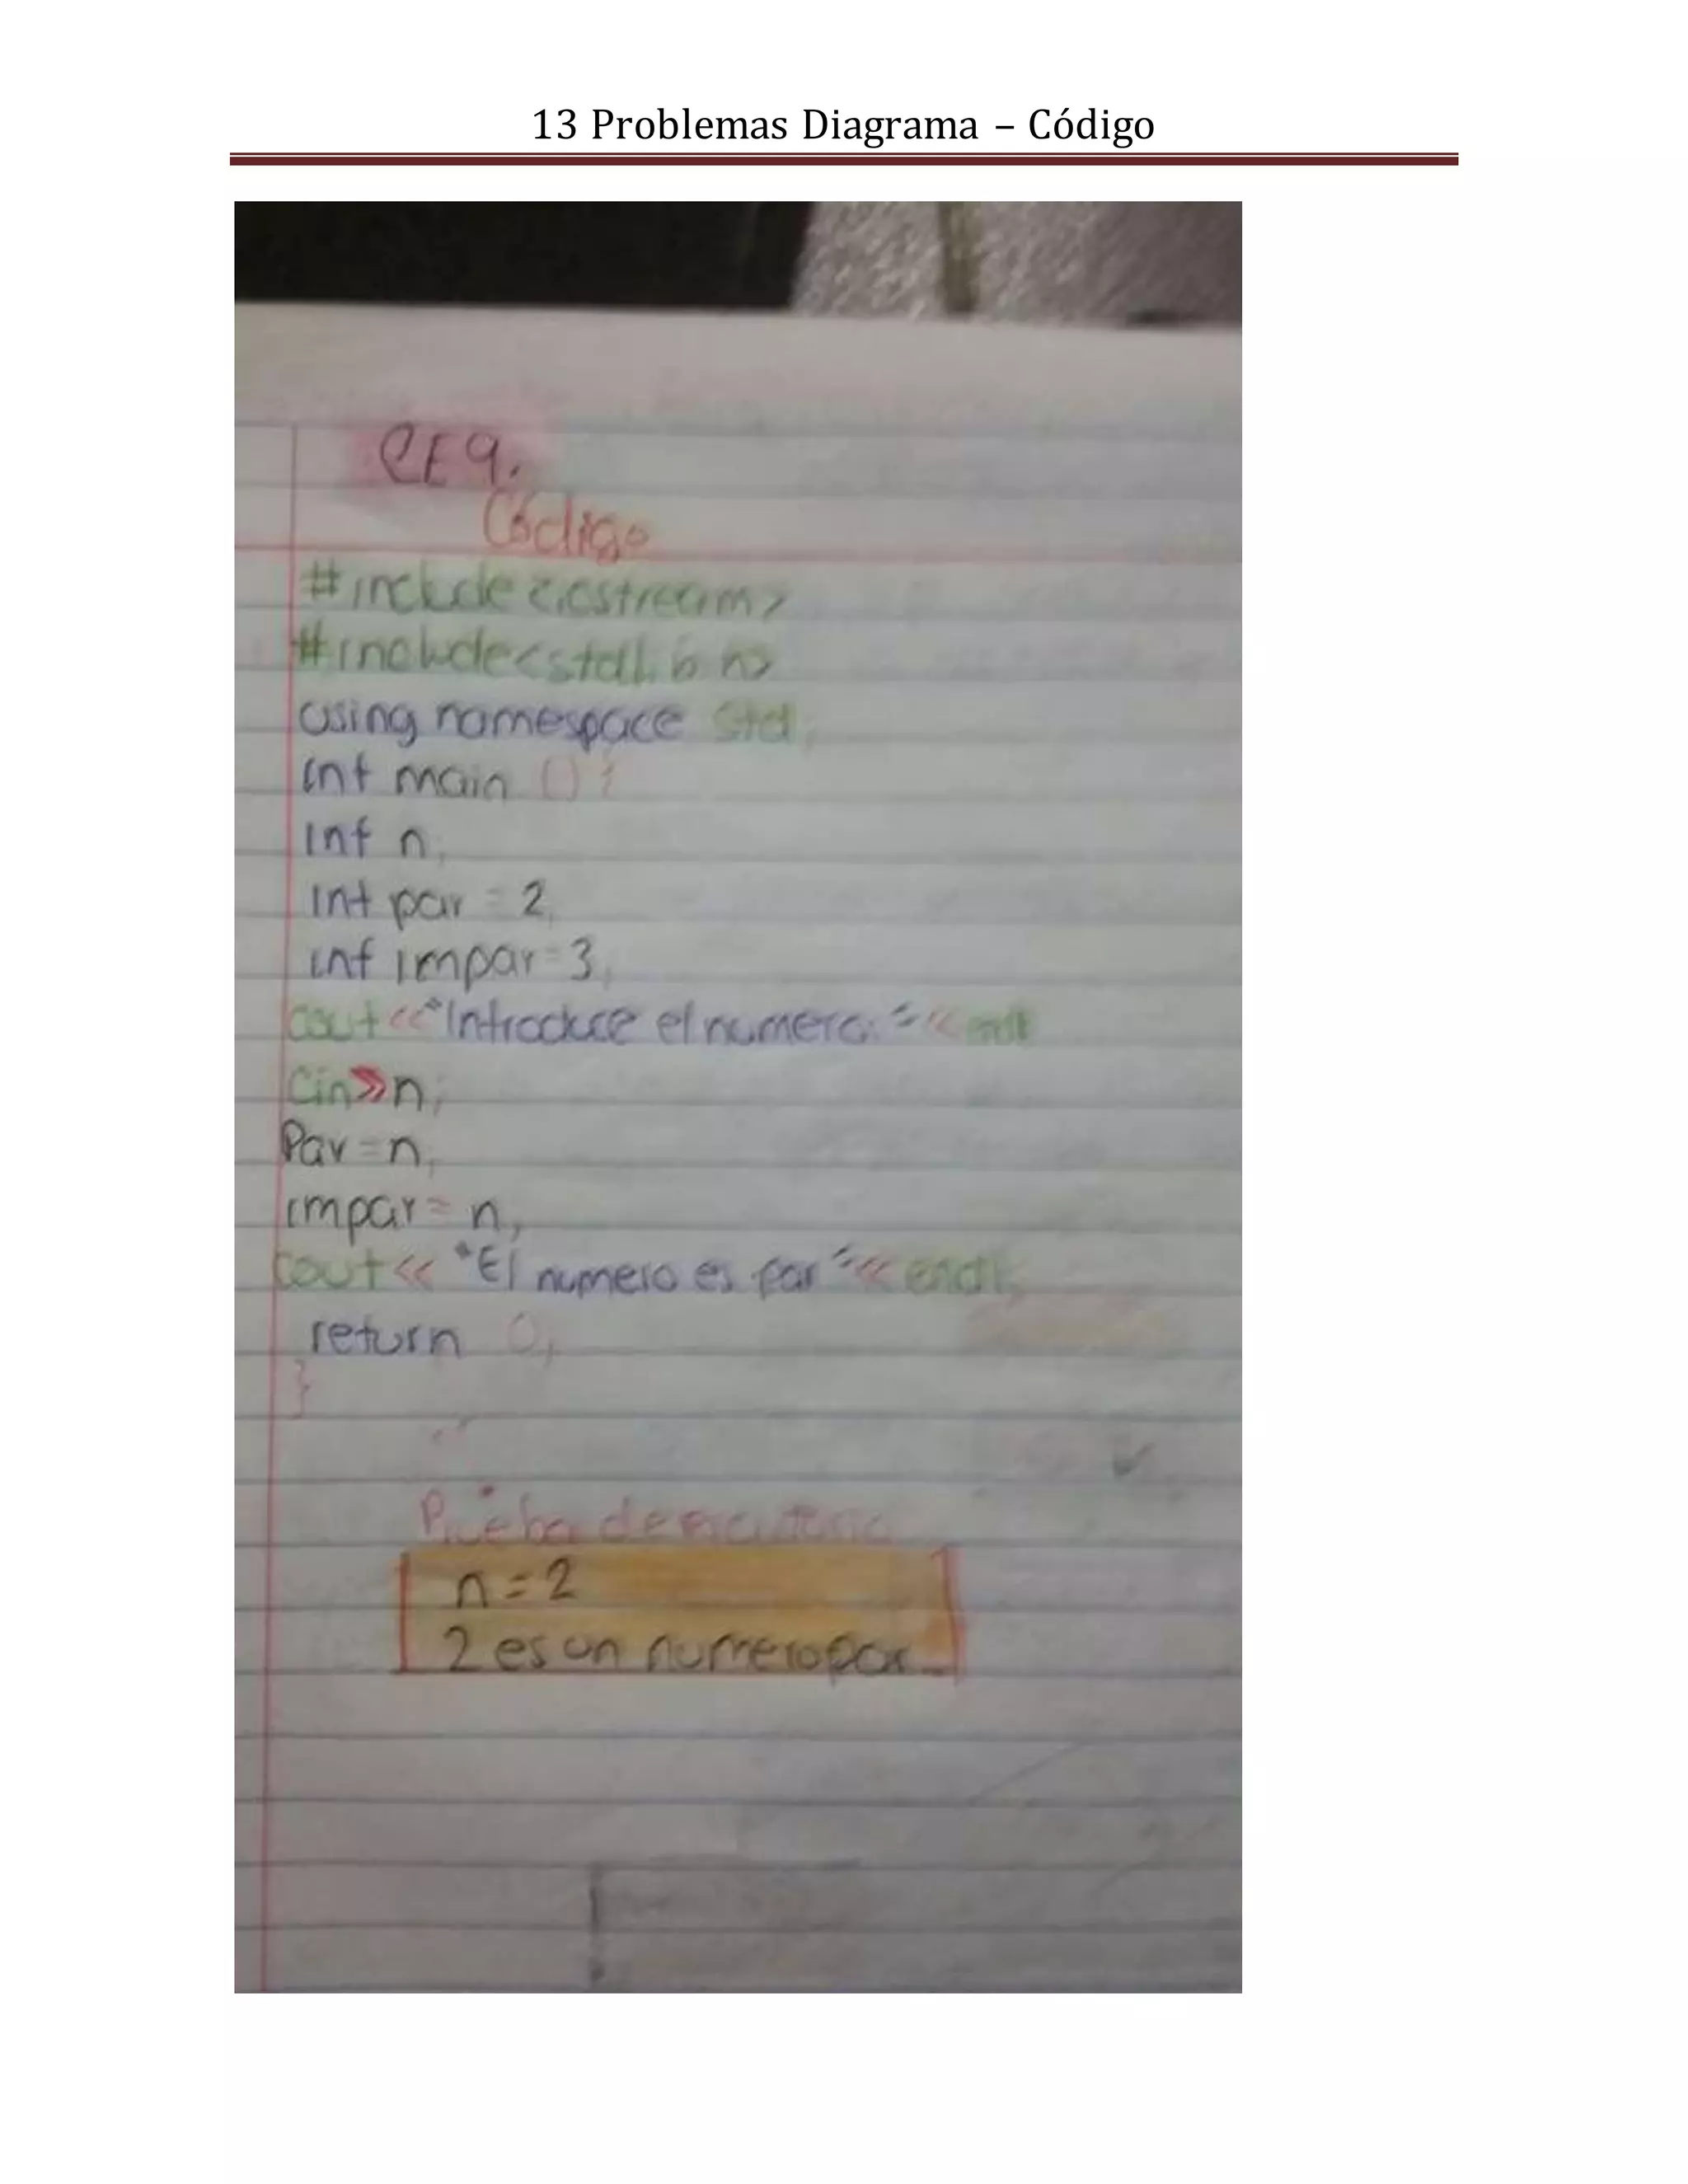 13 Problemas Diagrama – Código
CE9.
Código
#include<iostream>
#include<stdlib.h>
using namespace std;
int main () {
int n;
int par = 2;
int impar=3;
cout<<"Introduce el numero: "<<endl
Cin>>n;
Par=n;
impar= n;
cout<< "El numero es par"<< endl;
return 0;
}
Prueba de escritorio
n=2
2 es un numero par